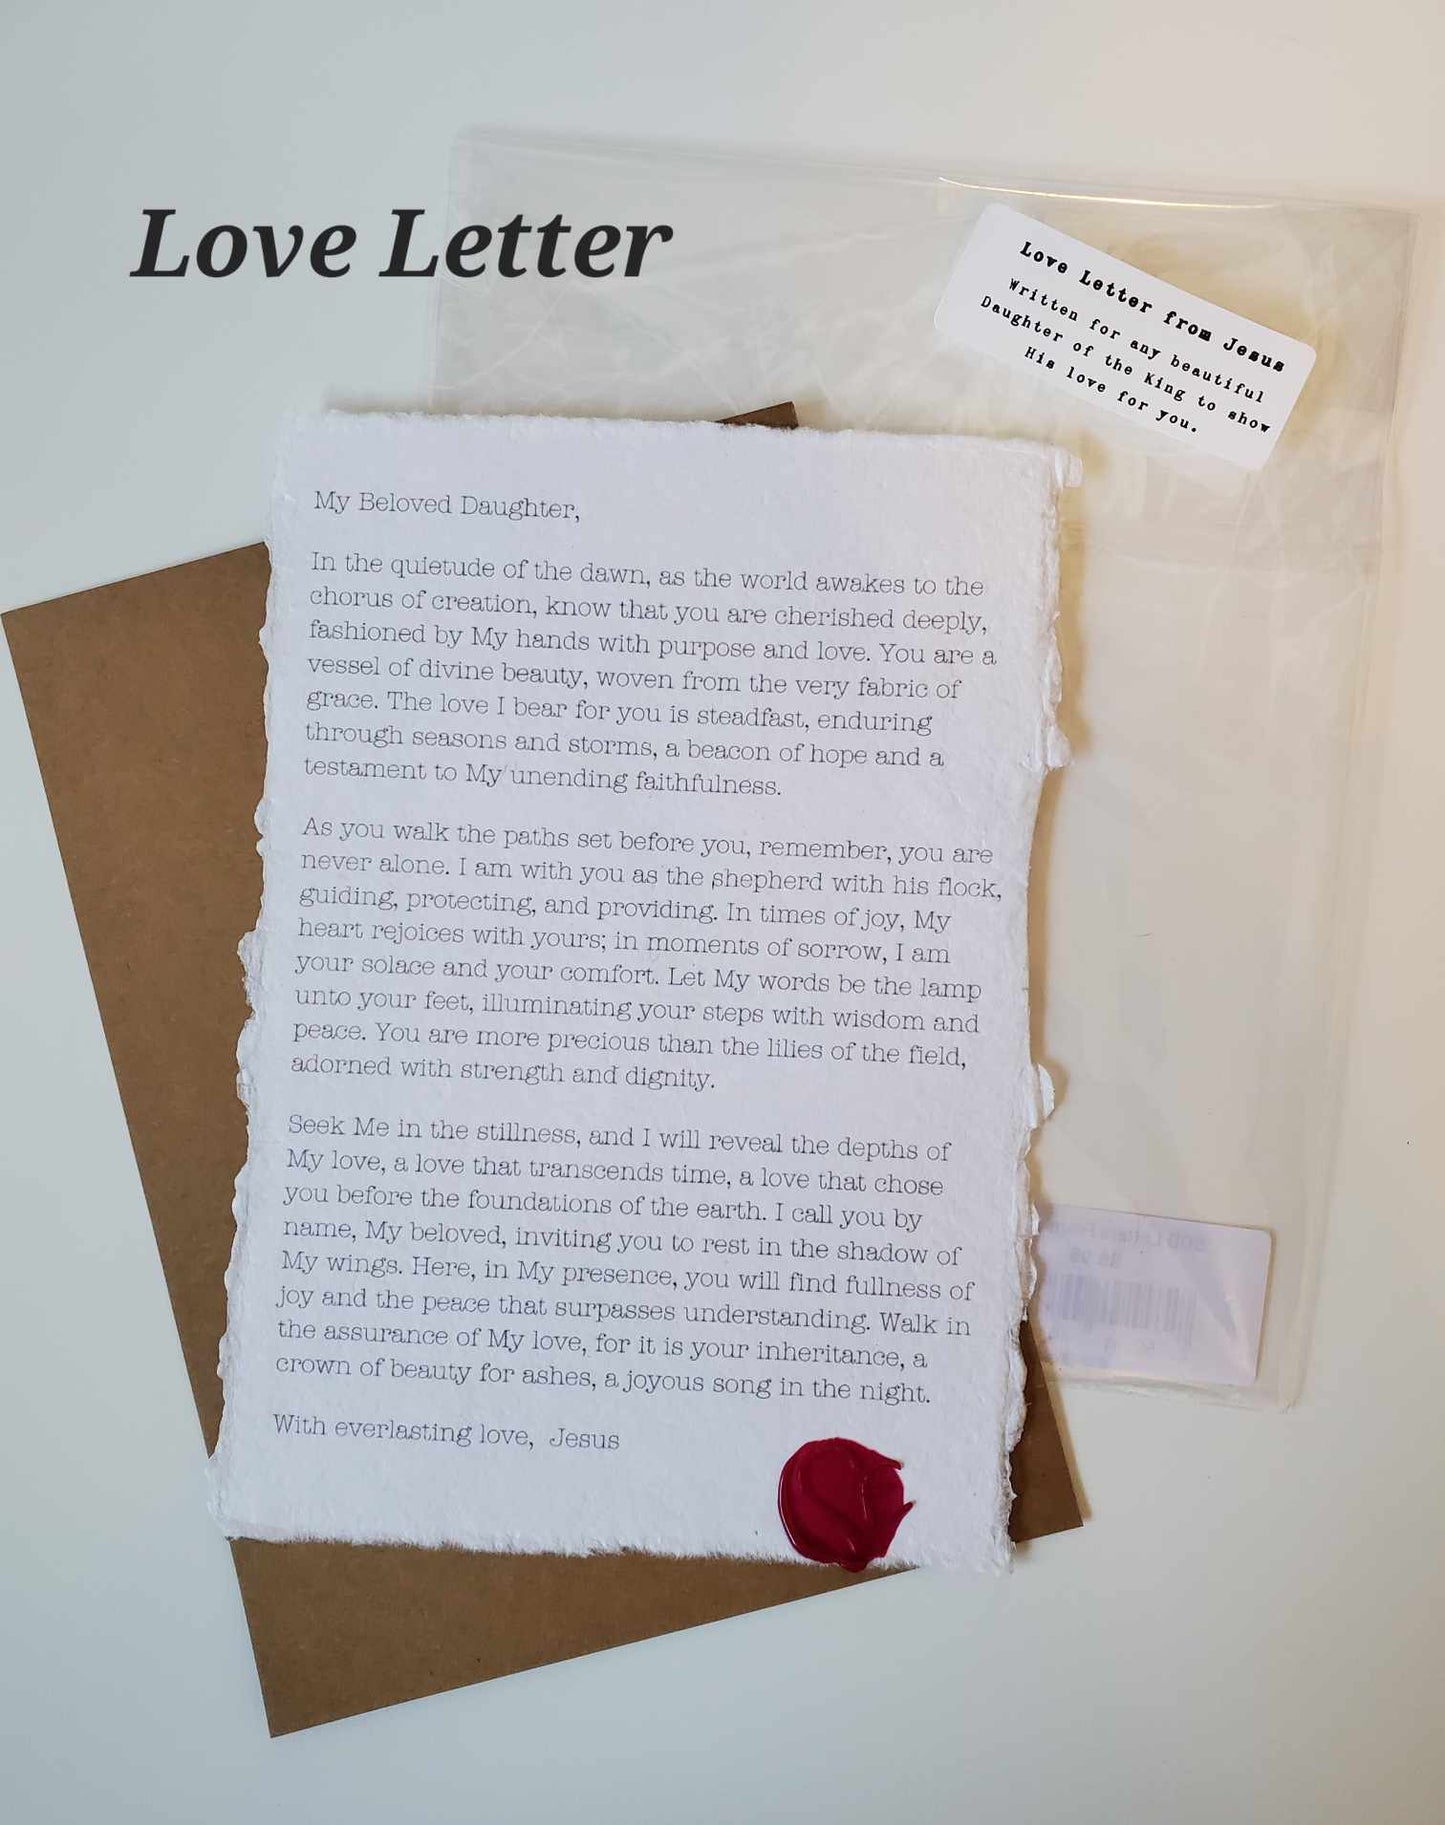 Love Letter
Love Letter from Jesus
Written for any beautiful
Daughter of the King to show
His love for you.
My Beloved Daughter,
In the quietude of the dawn, as the world awakes to the
chorus of creation, know that you are cherished deeply,
fashioned by My hands with purpose and love. You are a
vessel of divine beauty, woven from the very fabric of
grace. The love I bear for you is steadfast, enduring
through seasons and storms, a beacon of hope and a
testament to My unending faithfulness.
As you walk the paths set before you, remember, you are
never alone. I am with you as the shepherd with his flock,
guiding, protecting, and providing. In times of joy, My
heart rejoices with yours; in moments of sorrow, I am
your solace and your comfort. Let My words be the lamp
unto your feet, illuminating your steps with wisdom and
peace. You are more precious than the lilies of the field,
adorned with strength and dignity.
Seek Me in the stillness, and I will reveal the depths of
My love, a love that transcends time, a love that chose
you before the foundations of the earth. I call you by
name, My beloved, inviting you to rest in the shadow of
My wings. Here, in My presence, you will find fullness of
joy and the peace that surpasses understanding. Walk in
the assurance of My love, for it is your inheritance, a
crown of beauty for ashes, a joyous song in the night.
With everlasting love, Jesus